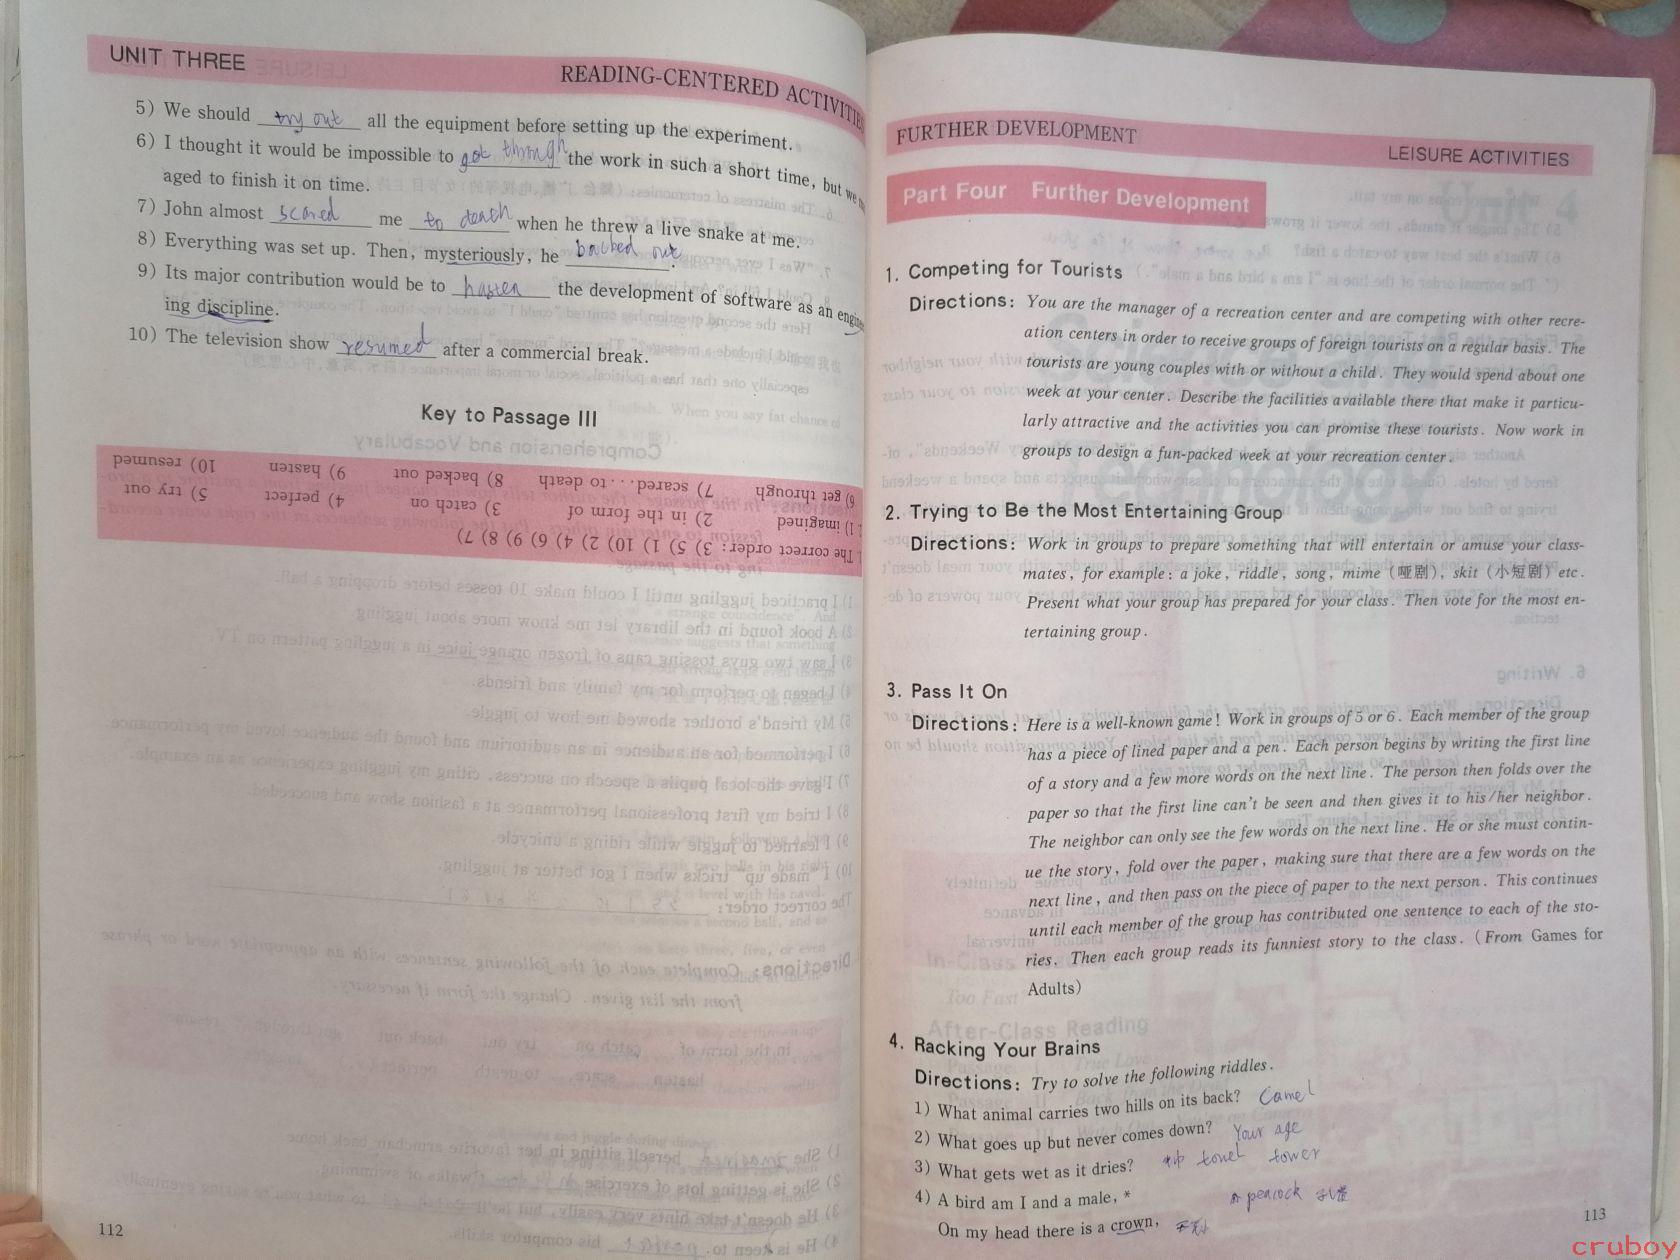 UNIT THREE
READING-CENTERED ACTIVITIES
5) We should try out all the equipment before setting up the experiment.
6) I thought it would be impossible to got through the work in such a short time, but we
aged to finish it on time.
7) John almost scared me to death when he threw a live snake at me.
8) Everything was set up. Then, mysteriously, he backed out.
9) Its major contribution would be to hasten the development of software as an engineer-
ing discipline.
10) The television show resumed after a commercial break.
Key to Passage III
1. The correct order: 3) 5) 1) 10) 2) 4) 6) 9) 8) 7)
1) imagined 2) in the form of 3) catch on 4) perfect 5) try out
6) get through 7) scared...to death 8) backed out 9) hasten 10) resumed
112
FURTHER DEVELOPMENT
LEISURE ACTIVITIES
Part Four Further Development
1. Competing for Tourists
Directions: You are the manager of a recreation center and are competing with other recre-
ation centers in order to receive groups of foreign tourists on a regular basis. The
tourists are young couples with or without a child. They would spend about one
week at your center. Describe the facilities available there that make it particu-
larly attractive and the activities you can promise these tourists. Now work in
groups to design a fun-packed week at your recreation center.
2. Trying to Be the Most Entertaining Group
Directions: Work in groups to prepare something that will entertain or amuse your class-
mates, for example: a joke, riddle, song, mime (哑剧), skit (小短剧) etc.
Present what your group has prepared for your class. Then vote for the most en-
tertaining group.
3. Pass It On
Directions: Here is a well-known game! Work in groups of 5 or 6. Each member of the group
has a piece of lined paper and a pen. Each person begins by writing the first line
of a story and a few more words on the next line. The person then folds over the
paper so that the first line can't be seen and then gives it to his/her neighbor.
The neighbor can only see the few words on the next line. He or she must contin-
ue the story, fold over the paper, making sure that there are a few words on the
next line, and then pass on the piece of paper to the next person. This continues
until each member of the group has contributed one sentence to each of the sto-
ries. Then each group reads its funniest story to the class. (From Games for
Adults)
4. Racking Your Brains
Directions: Try to solve the following riddles.
1) What animal carries two hills on its back? Camel
2) What goes up but never comes down? Your age
3) What gets wet as it dries? towel tower
4) A bird am I and a male, * peacock 孔雀
On my head there is a crown,
113
cruboy